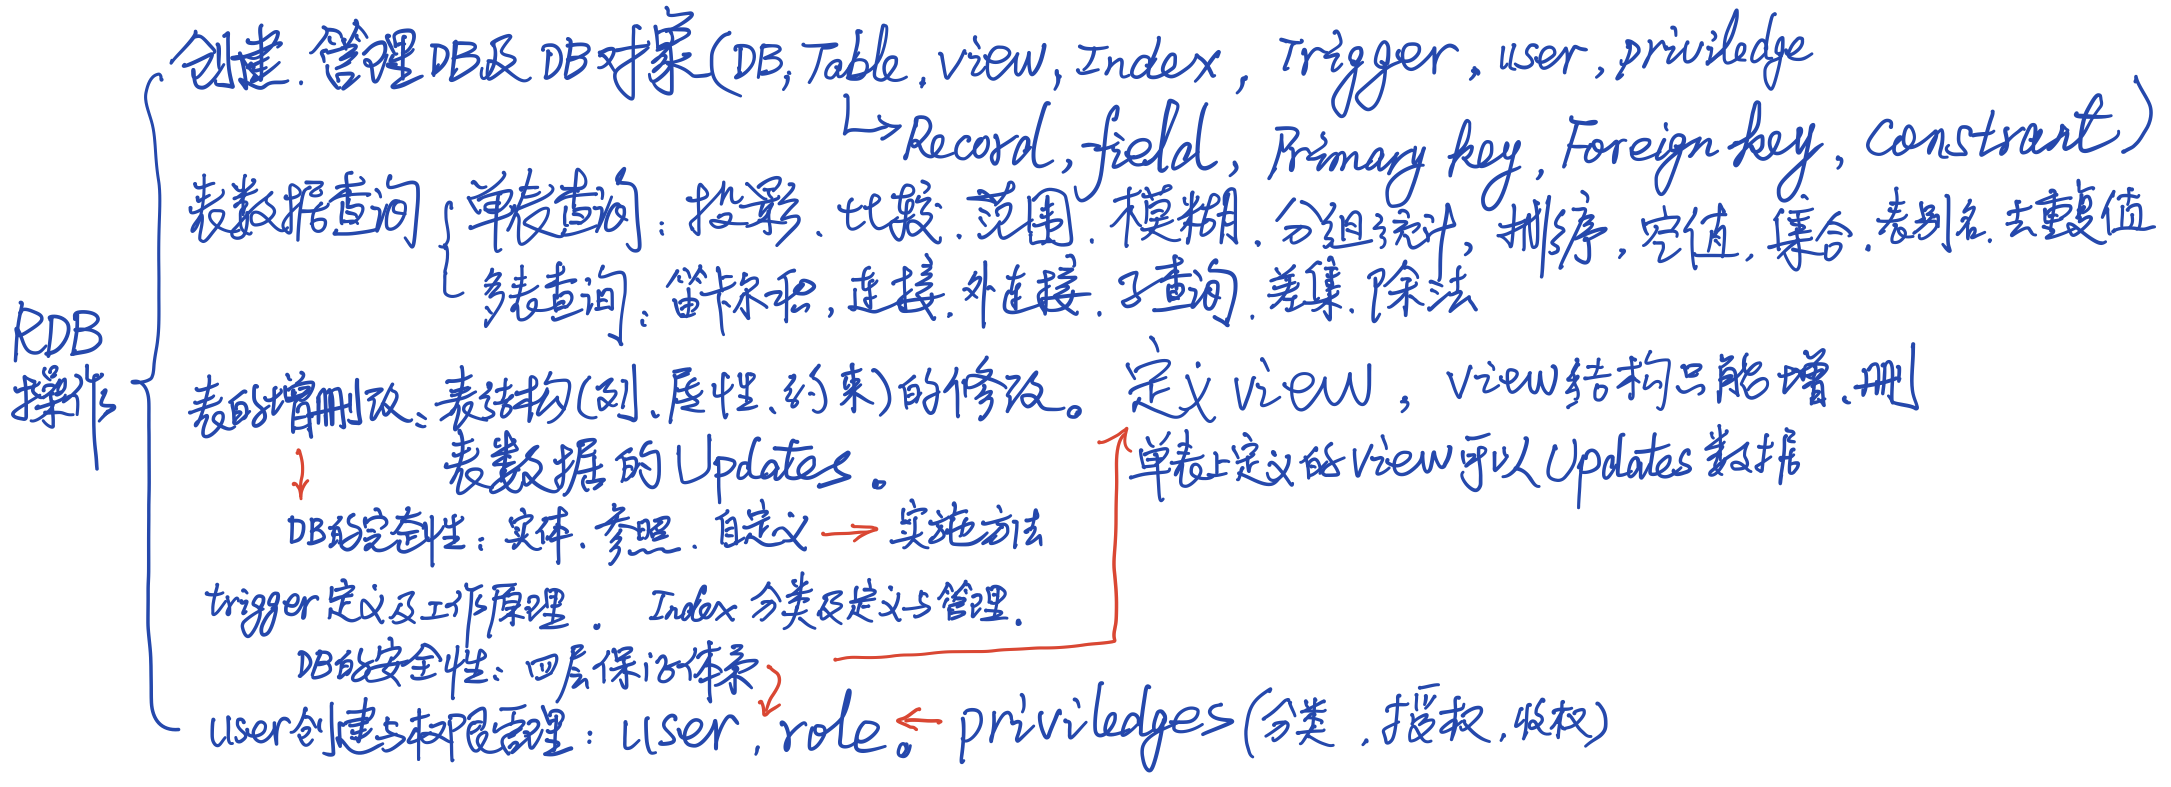 创建.管理DB及DB对象(DB, Table, view, Index, Trigger, user, priviledge
Record, field, Primary key, Foreign key, Constrant)
表数据查询 单表查询:投影、比较.范围.模糊.分组统计,排序,空值.集合.表别名.去重复值
多表查询:笛卡尔积,连接.外连接.子查询.差集.除法
RDB
操作
表的增删改:表结构(列、属性、约束)的修改。 定义view, view结构只能增.删
表数据的Updates。 单表上定义的view可以Updates数据
DB的完整性:实体.参照.自定义 → 实施方法
trigger定义及工作原理. Index 分类及定义与管理.
DB的安全性:四层保证体系
user创建与权限管理:user, role。 ← priviledges(分类,授权,收权)